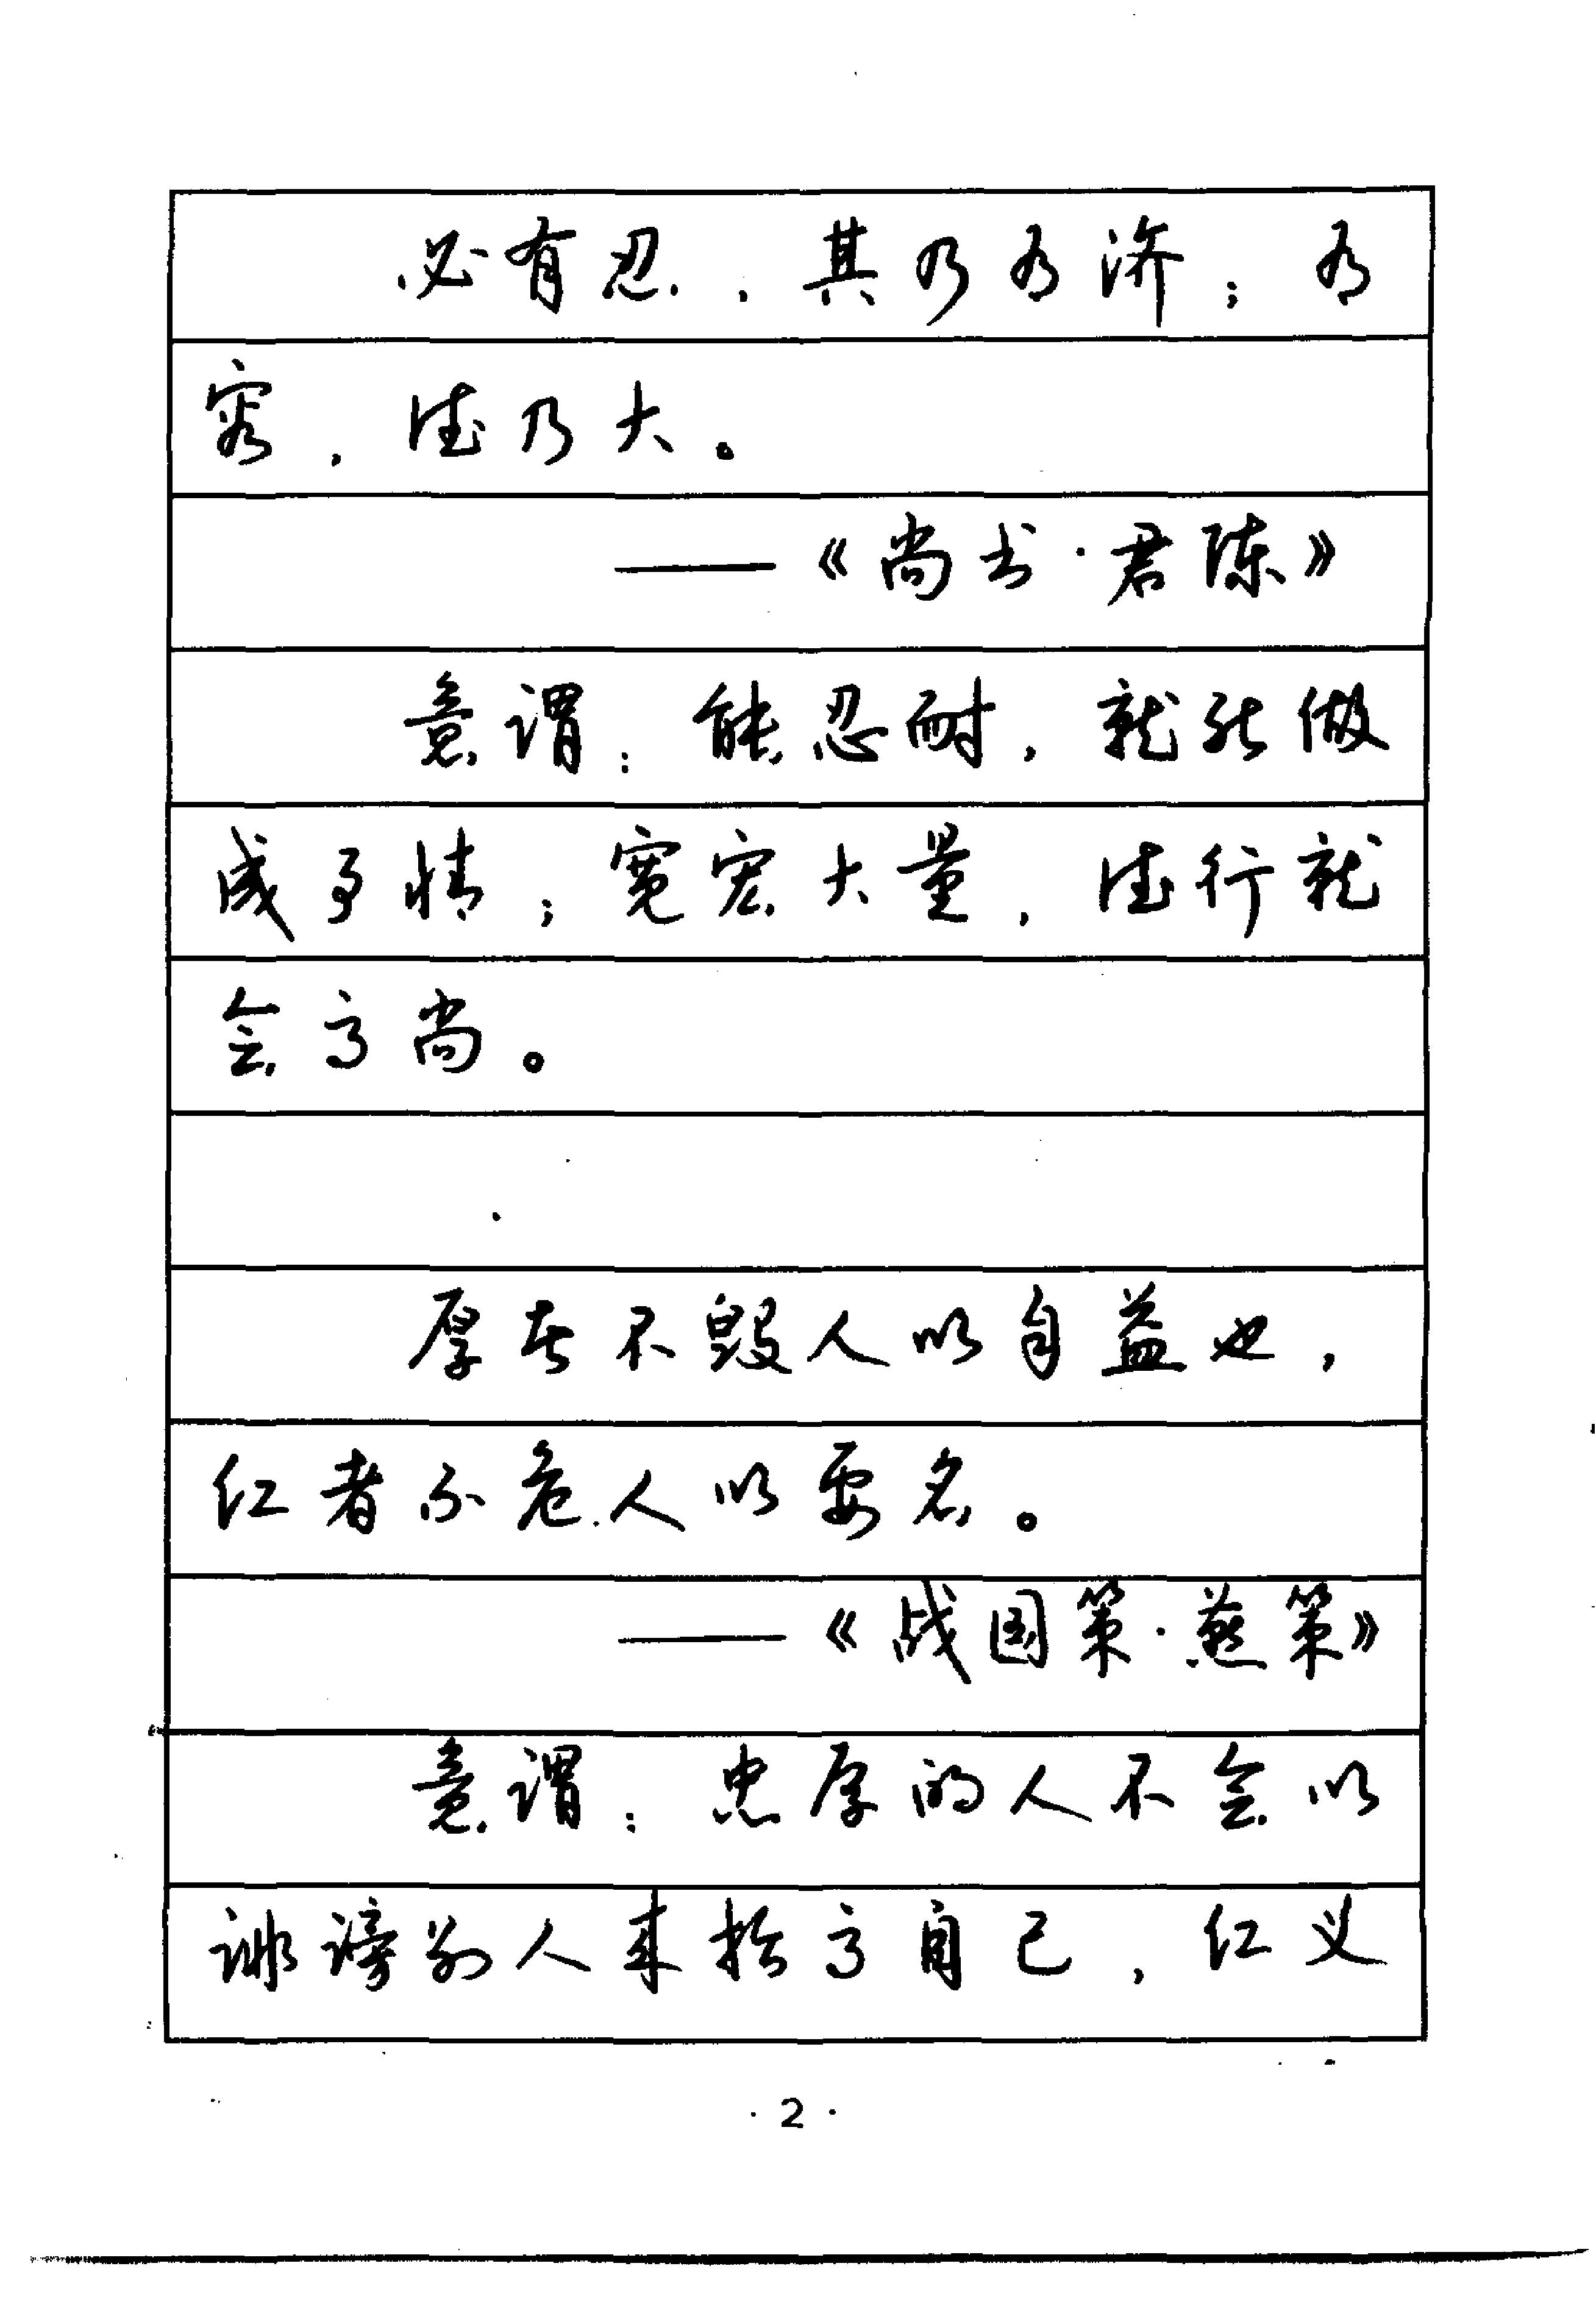 必有忍，其乃有济；有
容，德乃大。
——《尚书·君陈》
意谓：能忍耐，就能做
成事情；宽宏大量，德行就
会高尚。
厚者不毁人以自益也，
仁者不危人以要名。
——《战国策·燕策》
意谓：忠厚的人不会以
诽谤别人来抬高自己，仁义
·2·